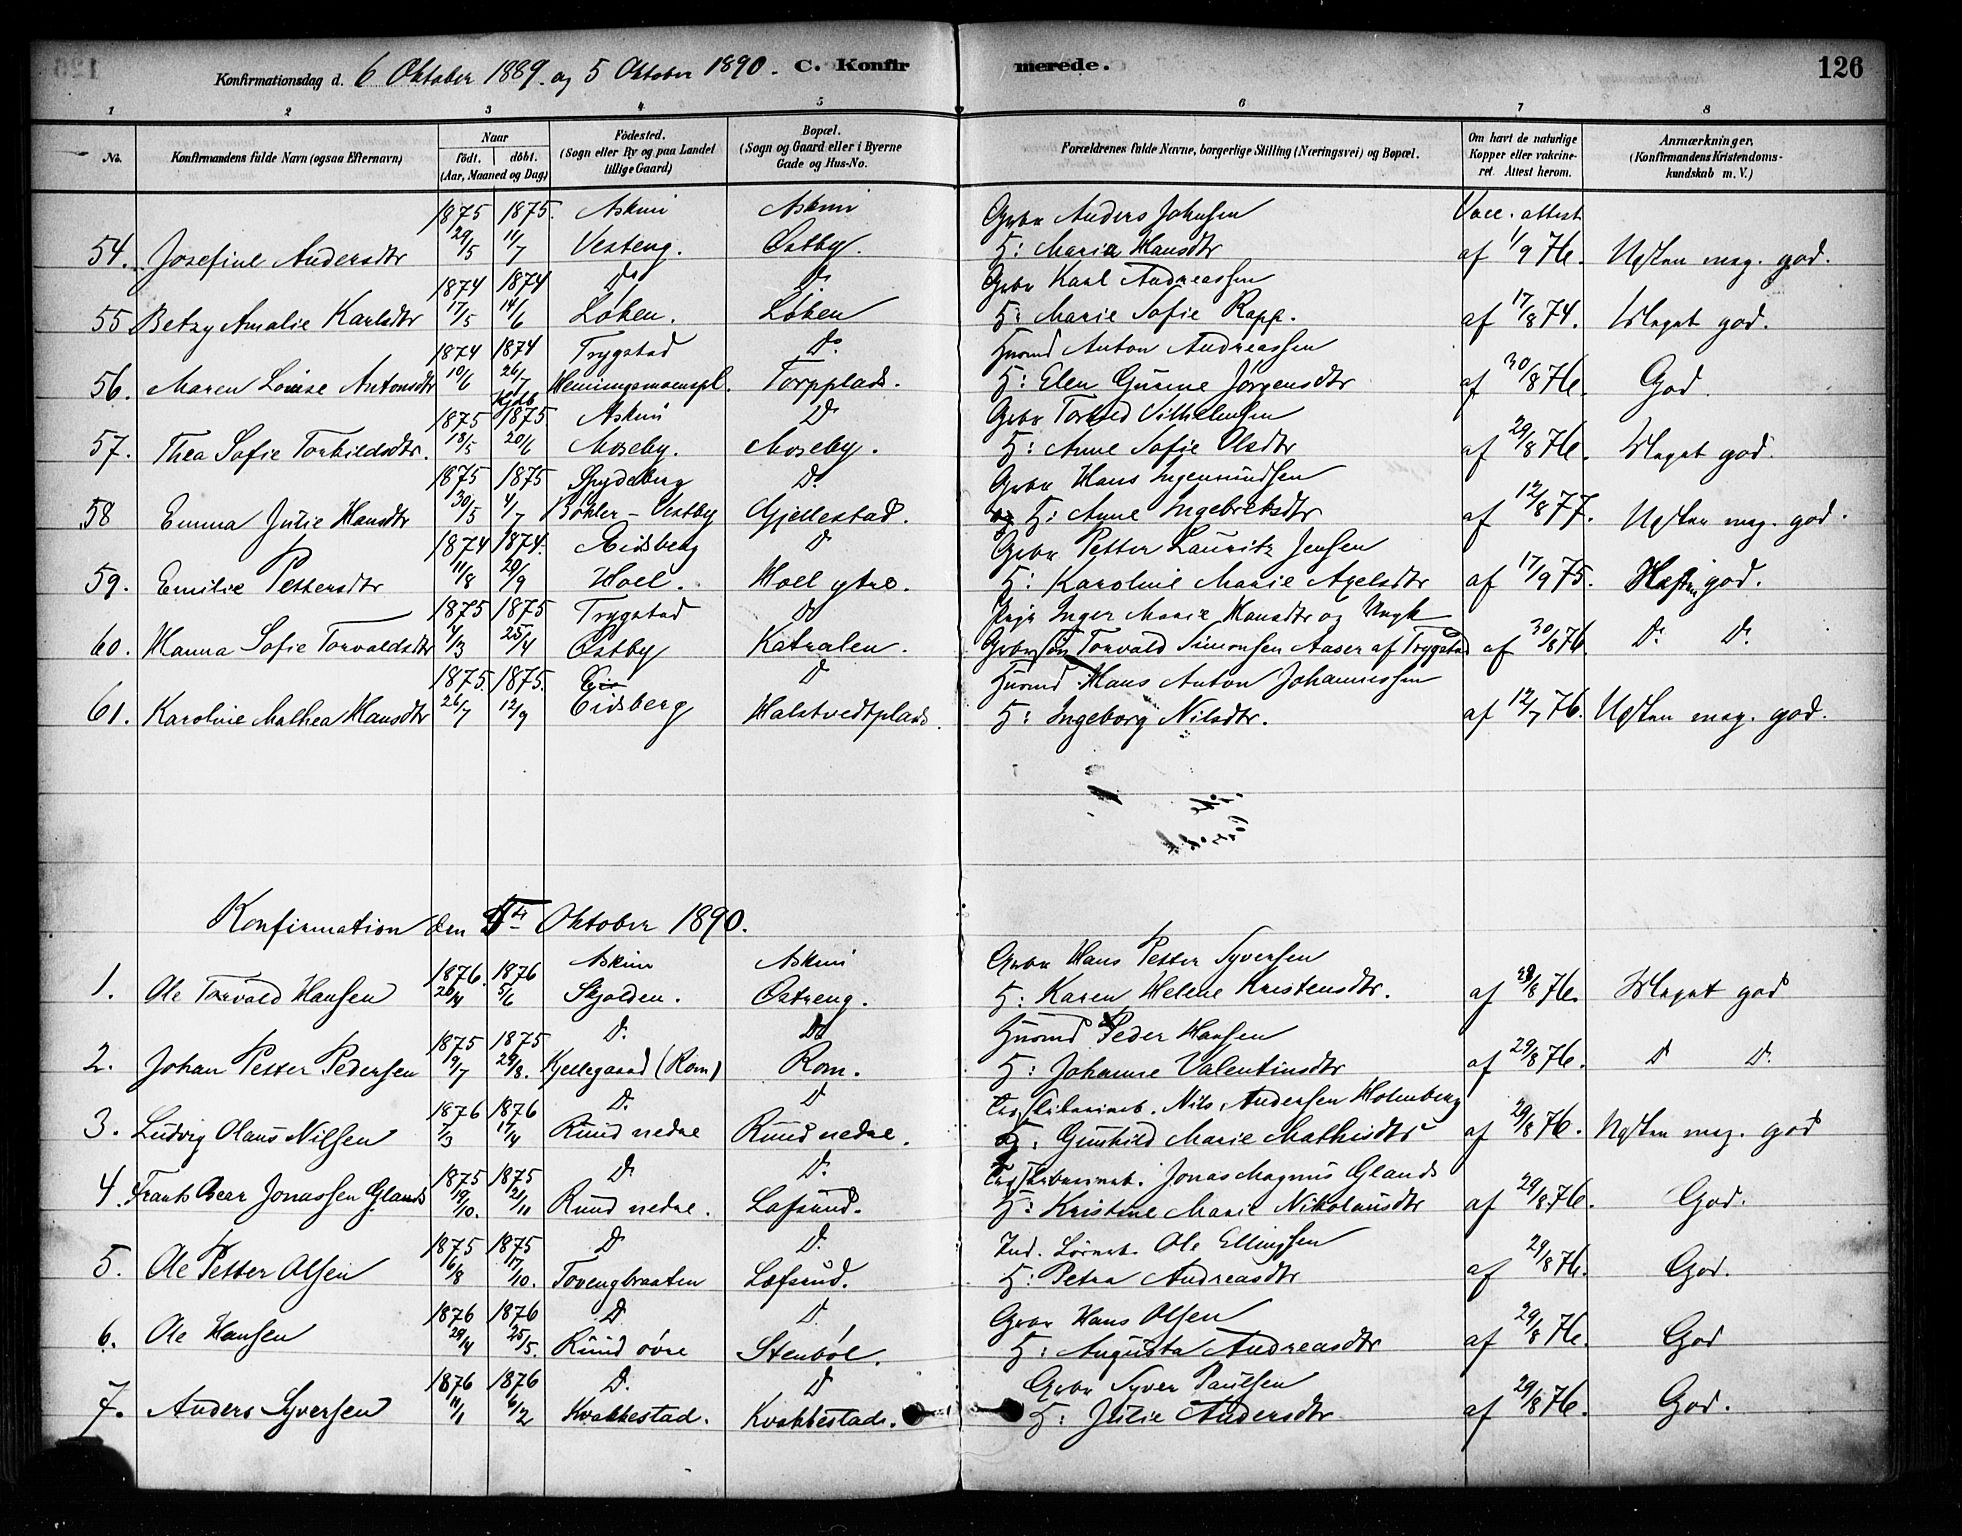 Konfirmationsdag d. 6 Oktober 1889. og 5 Oktober 1890. C. Konfirmerede. 126
1 2 3 4 5 6 7 8
No. Konfirmandens fulde Navn (ogsaa Efternavn) Naar født. døbt. (Aar, Maaned og Dag) Fødested. (Sogn eller By og paa Landet tillige Gaard) Bopæl. (Sogn og Gaard eller i Byerne Gade og Hus-No. Forældrenes fulde Navne, borgerlige Stilling (Næringsvei) og Bopæl. Om havt de naturlige Kopper eller vakcineret. Attest herom. Anmærkninger, (Konfirmandens Kristendomskundskab m. V.)
1875 1875. Askim Askim Grbr Anders Johnsen Vacc. attest
54. Josefine Andersdtr 29/5 11/7 Vesteng. Østby. H: Maria Hansdtr af 1/9 76. Næsten meg. god.
1874 1874 Do Do Grbr Karl Andreassen
55 Betzy Amalie Karlsdtr 17/5 14/6 Løken. Løken H: Marie Sofie Rapp. af 17/8 74. Meget god.
1874 1874 Trygstad Do Husmd Anton Andreassen
56. Maren Lovise Antonsdtr 10/6 26/7 Hjdb Henningsmoenspl. Torpplads. H: Elen Gurine Jørgensdtr af 30/8 76. God.
1875 1875 Askim D Grbr Torkild Vilhelmsen
57. Thea Sofie Torkildsdtr. 18/5 20/6 Moseby. Moseby. H: Anne Sofie Olsdtr af 29/8 76. Meget god.
1875 1875 Spydeberg D. Grbr Hans Ingemundsen
58 Emma Julie Hansdtr 30/5 4/7 Bøhler-Vestby Gjellestad. H: Anne Ingebretsdtr af 12/8 77. Næsten meg. god.
1874 1874. Eidsberg D Grbr Petter Lauritz Jensen
59. Emilie Pettersdtr 11/8 20/9 Hoel. Hoel ytre. H: Karoline Marie Axelsdtr af 17/9 75. Næsten god.
1875 1875 Trygstad D Pige Inger Marie Hansdtr og Ungk
60. Hanna Sofie Torvaldsdtr 4/3 25/4 Østby Katralen. Grbrsøn Torvald Simonsen Aaser af Trygstad af 30/8 76. D: D.
1875. 1875. D Husmd Hans Anton Johannessen
61. Karoline Mathea Hansdtr 26/7 12/9 Eidsberg Halstvedtplads. H: Ingeborg Nilsdtr. af 12/7 76. Næsten meg. god.
Konfirmation den Oktober 1890.
1876. 1876 Askim Askim Grbr Hans Petter Syversen
1. Ole Torvald Hansen 20/4 5/6 Skjolden. Østreng. H: Karen Helene Kristensdtr. af 29/8 76. Meget god
1875 1875 D. Do Husmd Peder Hansen
2. Johan Petter Pedersen 9/7 29/8. Kjellegaard (Rom) Rom. H: Johanne Valentinsdtr af 29/8 76. D D.
1876 1876 D. D Nils Andersen Holmberg
3. Ludvig Olaus Nilsen 7/3 17/4 Ruud nedre Ruud nedre. H: Gunhild Marie Mathisdtr af 29/8 76. Næsten meg. god
1875 1875 D. D. Jonas Magnus Glands
4. Frants Oscar Jonassen Glands 19/10. 21/11 Ruud nedre. Løfsrud. H: Kristine Marie Nikolausdtr af 29/8 76. God.
1875 1875 D D. Ind. Ole Ellingsen
5. Ole Petter Olsen 16/8 17/10. Tovengbraaten Løfsrud. H: Petra Andreasdtr af 29/8 76. God.
1876 1876 D D. Grbr Hans Olsen
6. Ole Hansen 29/4 25/5. Ruud øvre Stenbøl. H: Augusta Andreasdtr af 29/8 76. God
1876 1876 D. D Grbr Syver Paulsen
7. Anders Syversen 11/1 6/2 Kvakkestad. Kvakkestad. H: Julie Andersdtr af 29/8 76. God.